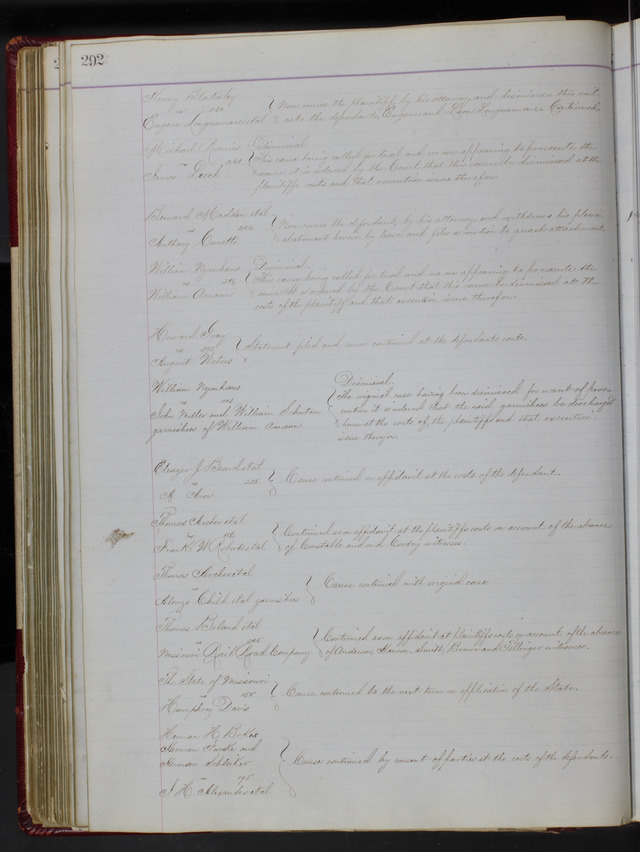 292
Henry Blakesley
vs
Eugene Longuemare et al
Now comes the plaintiff by his attorney and dismisses this suit
as to the defendants, Eugene and Leon Longuemare Continued
Michael
vs
James
Dismissal
This cause being called for trial and no one appearing to prosecute the
same it is ordered by the Court that this cause be dismissed at the
plaintiffs costs and that execution issue therefor.
Bernard Madden et al
vs
Anthony
Now comes the defendants by his attorney and withdraws his plea in
abatement herein by leave and files a motion to quash attachment
William Nynhaus
vs
William Amann
Dismissal.
This cause being called for trial and no one appearing to prosecute the
same it is ordered by the Court that this cause be dismissed at the
costs of the plaintiff and that execution issue therefor.
Howard Gray
vs
August Waters
Statement filed and cause continued at the defendants costs.
William Nynhaus
vs
John Miller and William
garnishees of William Amann
Dismissal.
The original case having been dismissed for want of prose-
cution it is ordered that the said garnishees be discharged
hence at the costs of the plaintiffs and that execution
issue therefor
Eleazer J. Beard et al
vs
A
Cause continued on affidavit at the costs of the defendant.
Thomas Archer et al
vs
Frank W et al
Continued as on affidavit at the plaintiffs costs on account of the absence
of Constable and witnesses.
Thomas Archer et al
vs
Alonzo Child et al garnishees
Cause continued with original case
Thomas Boland et al
vs
Missouri Rail Road Company
Continued as on affidavit at plaintiffs costs on account of the absence
of Anderson, Hanson, Smith, Brown and witnesses.
The State of Missouri
vs
Humphrey Davis
Cause continued to the next term on application of the State.
Herman H.
Herman and
Herman
vs 195
J. H. Alexander et al
Cause continued by consent of parties at the costs of the defendants.